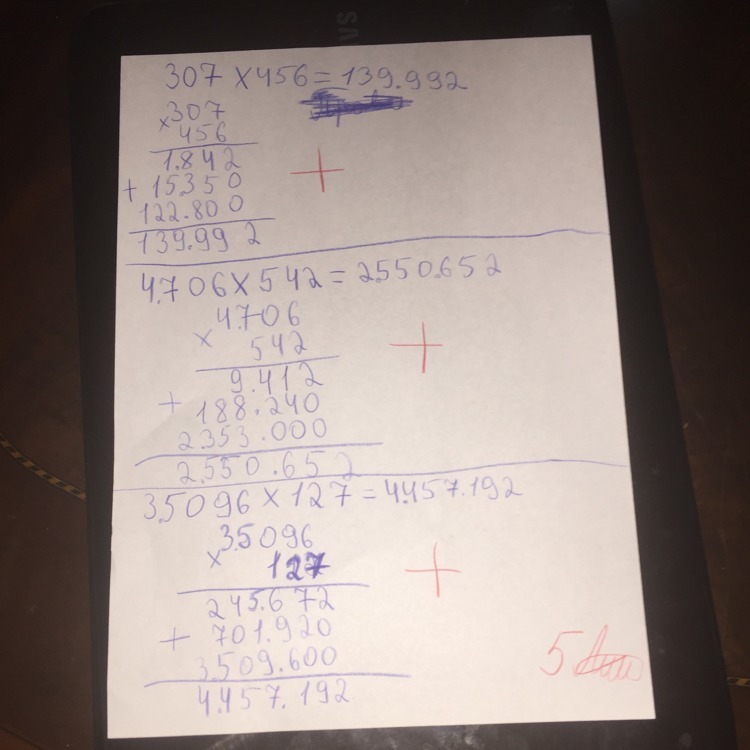 307 × 456 = 139.992
307
× 456
1.842
+ 15350
122.800
139.992
+
4.706 × 542 = 2.550.652
4.706
× 542
9.412
+ 188.240
2353.000
2.550.652
+
35096 × 127 = 4.457.192
35096
× 127
245.672
+ 701.920
3.509.600
4.457.192
+
5